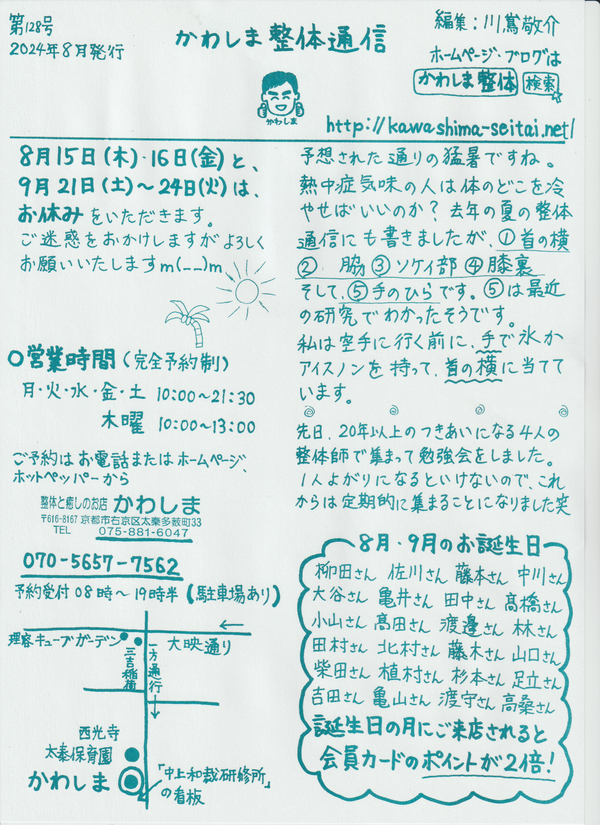 第128号
2024年8月発行
かわしま整体通信
かわしま
編集：川嶌敬介
ホームページ・ブログは
かわしま整体 検索
http://kawashima-seitai.net/
8月15日(木)・16日(金)と、
9月21日(土)～24日(火)は、
お休みをいただきます。
ご迷惑をおかけしますがよろしく
お願いいたしますm(__)m
〇営業時間(完全予約制)
月・火・水・金・土 10:00～21:30
木曜 10:00～13:00
ご予約はお電話またはホームページ、
ホットペッパーから
整体と癒しのお店 かわしま
〒616-8167 京都市右京区太秦多薮町33
TEL 075-881-6047
070-5657-7562
予約受付 08時～19時半(駐車場あり)
理容キューブガーデン
三吉稲荷
一方通行
大映通り
西光寺
太秦保育園
かわしま
「中上和裁研修所」
の看板
予想された通りの猛暑ですね。
熱中症気味の人は体のどこを冷
やせばいいのか？去年の夏の整体
通信にも書きましたが、①首の横
② 脇 ③ソケイ部 ④膝裏
そして、⑤手のひらです。⑤は最近
の研究でわかったそうです。
私は空手に行く前に、手で氷か
アイスノンを持って、首の横に当てて
います。
先日、20年以上のつきあいになる4人の
整体師で集まって勉強会をしました。
1人よがりになるといけないので、これ
からは定期的に集まることになりました笑
8月・9月のお誕生日
柳田さん 佐川さん 藤本さん 中川さん
大谷さん 亀井さん 田中さん 高橋さん
小山さん 高田さん 渡邊さん 林さん
田村さん 北村さん 藤木さん 山口さん
柴田さん 植村さん 杉本さん 足立さん
吉田さん 亀山さん 渡守さん 高桑さん
誕生日の月にご来店されると
会員カードのポイントが2倍！